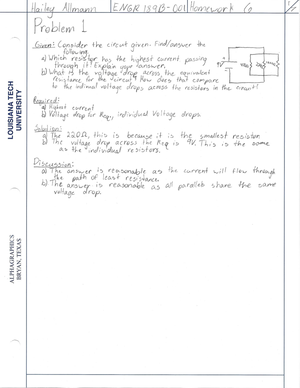 Hailey Allmann ENGR 189B-001 Homework 6 1/6
Problem 1
Given: Consider the circuit given. Find/answer the
following:
a) Which resistor has the highest current passing
through it? Explain your answer.
b) What is the voltage drop across the equivalent
resistance for the circuit? How does that compare
to the individual voltage drops across the resistors in the circuit?
9V
Required:
a) Highest current
b) Voltage drop for Req, individual Voltage drops.
Solution:
a) The 220Ω, this is because it is the smallest resistor.
b) The voltage drop across the Req is 9V. This is the same
as the individual resistors.
Discussion:
a) The answer is reasonable as the current will flow through
the path of least resistance.
b) The answer is reasonable as all parallels share the same
voltage drop.
LOUISIANA TECH
UNIVERSITY
ALPHAGRAPHICS
BRYAN, TEXAS